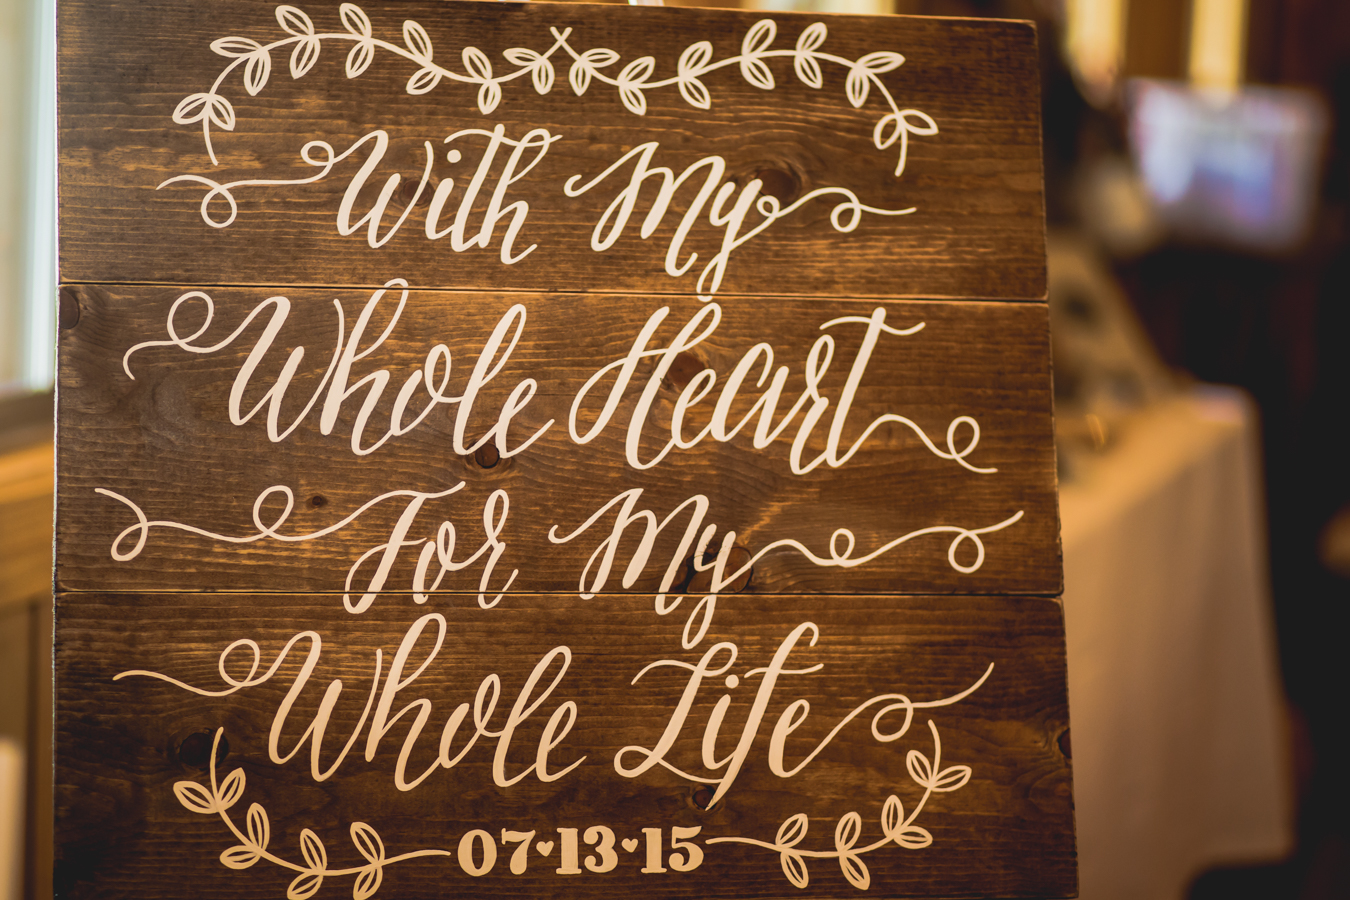 With My
Whole Heart
For My
Whole Life
07♥13♥15